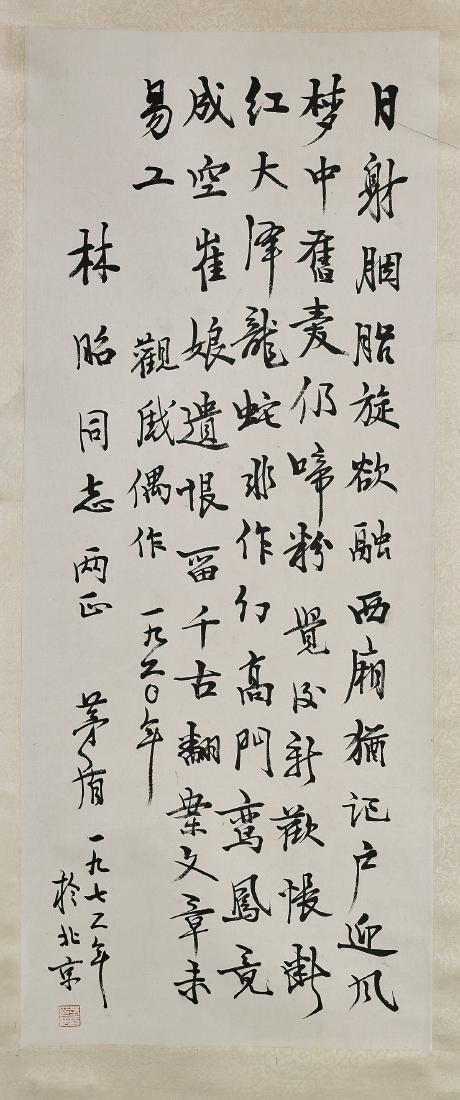 日射胭脂旋欲融西廂猶记户迎风
梦中舊爱仍啼粉覺後新歡悵断
红大泽龍蛇非作幻高门鸾鳳竟
成空崔娘遺恨留千古翻案文章未
易工 觀戏偶作 一九六〇年
林昭同志两正 茅盾 一九七二年
於北京